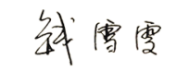 钱雪雯